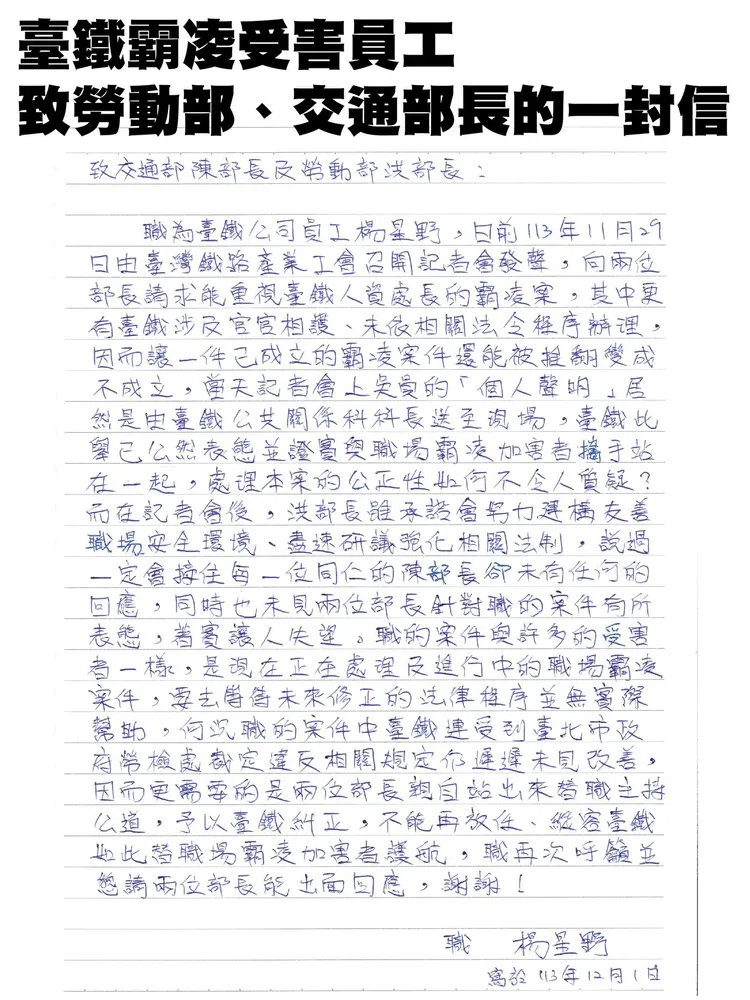 臺鐵霸凌受害員工
致勞動部、交通部長的一封信
致交通部陳部長及勞動部洪部長：
職為臺鐵公司員工楊星野，日前113年11月29
日由臺灣鐵路產業工會召開記者會發聲，向兩位
部長請求能重視臺鐵人資處長的霸凌案，其中更
有臺鐵涉及官官相護、未依相關法令程序辦理，
因而讓一件已成立的霸凌案件還能被推翻變成
不成立，當天記者會上吳員的「個人聲明」居
然是由臺鐵公共關係科科長送至現場，臺鐵此
舉已公然表態並證實與職場霸凌加害者攜手站
在一起，處理本案的公正性如何不令人質疑？
而在記者會後，洪部長雖承諾會努力建構友善
職場安全環境、盡速研議強化相關法制，說過
一定會接住每一位同仁的陳部長卻未有任何的
回應，同時也未見兩位部長針對職的案件有所
表態，著實讓人失望。職的案件與許多的受害
者一樣，是現在正在處理及進行中的職場霸凌
案件，要去等待未來修正的法律程序並無實際
幫助，何況職的案件中臺鐵連受到臺北市政
府勞檢處裁定違反相關規定仍遲遲未見改善，
因而更需要的是兩位部長親自站出來替職主持
公道，予以臺鐵糾正，不能再放任、縱容臺鐵
如此替職場霸凌加害者護航，職再次呼籲並
懇請兩位部長能出面回應，謝謝！
職 楊星野
寫於113年12月1日